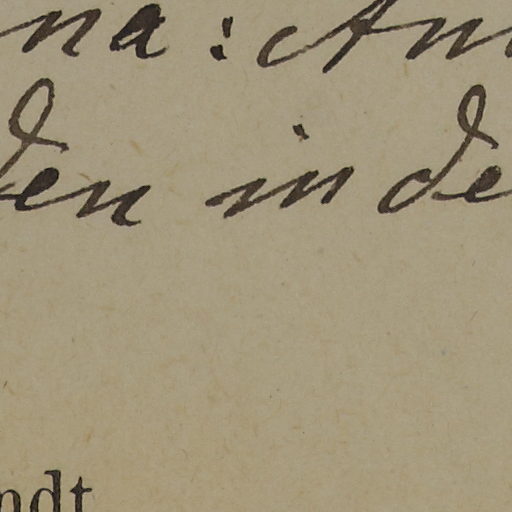 na: Am
den in de
ndt